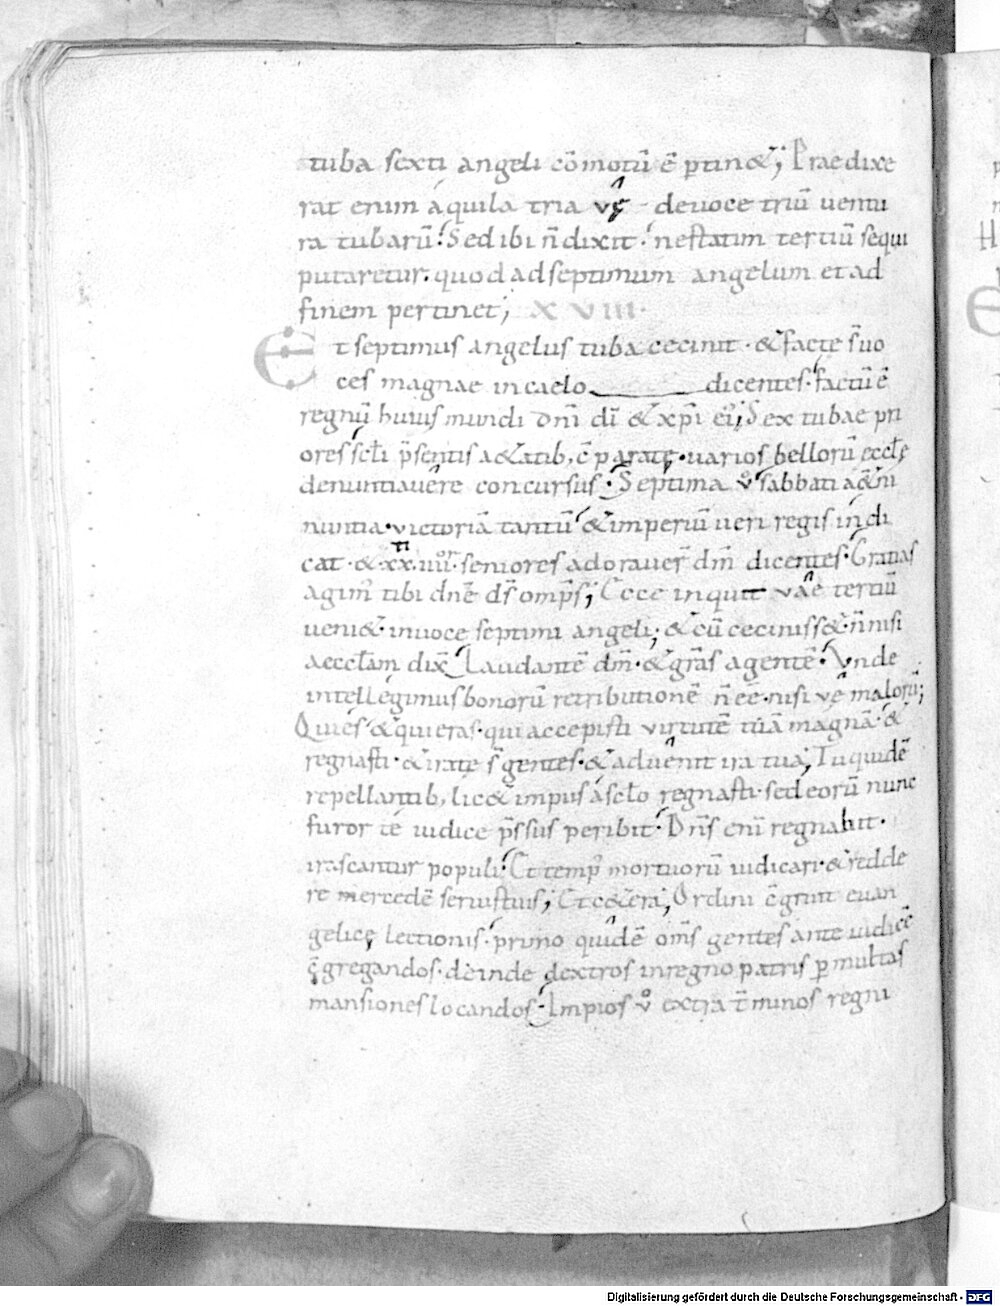 tuba sexti angeli cōmotū ē ptin&; Praedixe
rat enim aquila tria vę de voce triū uentu
ra tubarū. Sed ibi ñ dixit. ne statim tertiū sequi
putaretur. quod ad septimum angelum et ad
finem pertinet; XVIII.
Et septimus angelus tuba cecinit. & facte s̄ uo
ces magnae in caelo dicentes. factū ē
regnū huius mundi dñi dī & xp̄i ei'; Sex tubae pri
ores scl̄i p̄sentis a&atib; cparatę. uarios bellorū eccl̄ę
denuntiauere concursus. Septima v° sabbati a&ni
nuntia. victoriā tantū & imperiū ueri regis indi
cat. & xx.iiiior. seniores adorauer̄ dm̄ dicentes. Gratias
agim' tibi dnē ds̄ omp̄s; Ecce inquit vae tertiū
ueni&. in uoce septimi angeli; & cū cecinisset. ñ nisi
aeccl̄am dix̄ Laudantē dm̄. & gr̄as agentē. Vnde
intellegimus bonorū retributionē ñ eē. nisi vę malorū;
Qui es & qui eras. qui accepisti virtutē tuā magnā. &
regnasti. & irate s̄ gentes. & aduenit ira tua; Tu quidē
repellantib; lic& impiis a sclo regnasti. sed eorū nunc
furor te iudice p̄ssus peribit. Dn̄s enī regnabit.
irascantur populi. Et temp' mortuorū iudicari. & redde
re mercedē seruis tuis; Et c&era; Ordini c̄gruit euan
gelicę lectionis. primo quidē om̄s gentes ante iudicē
c̄gregandos. deinde dextros in regno patris p multas
mansiones locandos. Impios v° extra t̄minos regni
Digitalisierung gefördert durch die Deutsche Forschungsgemeinschaft - DFG